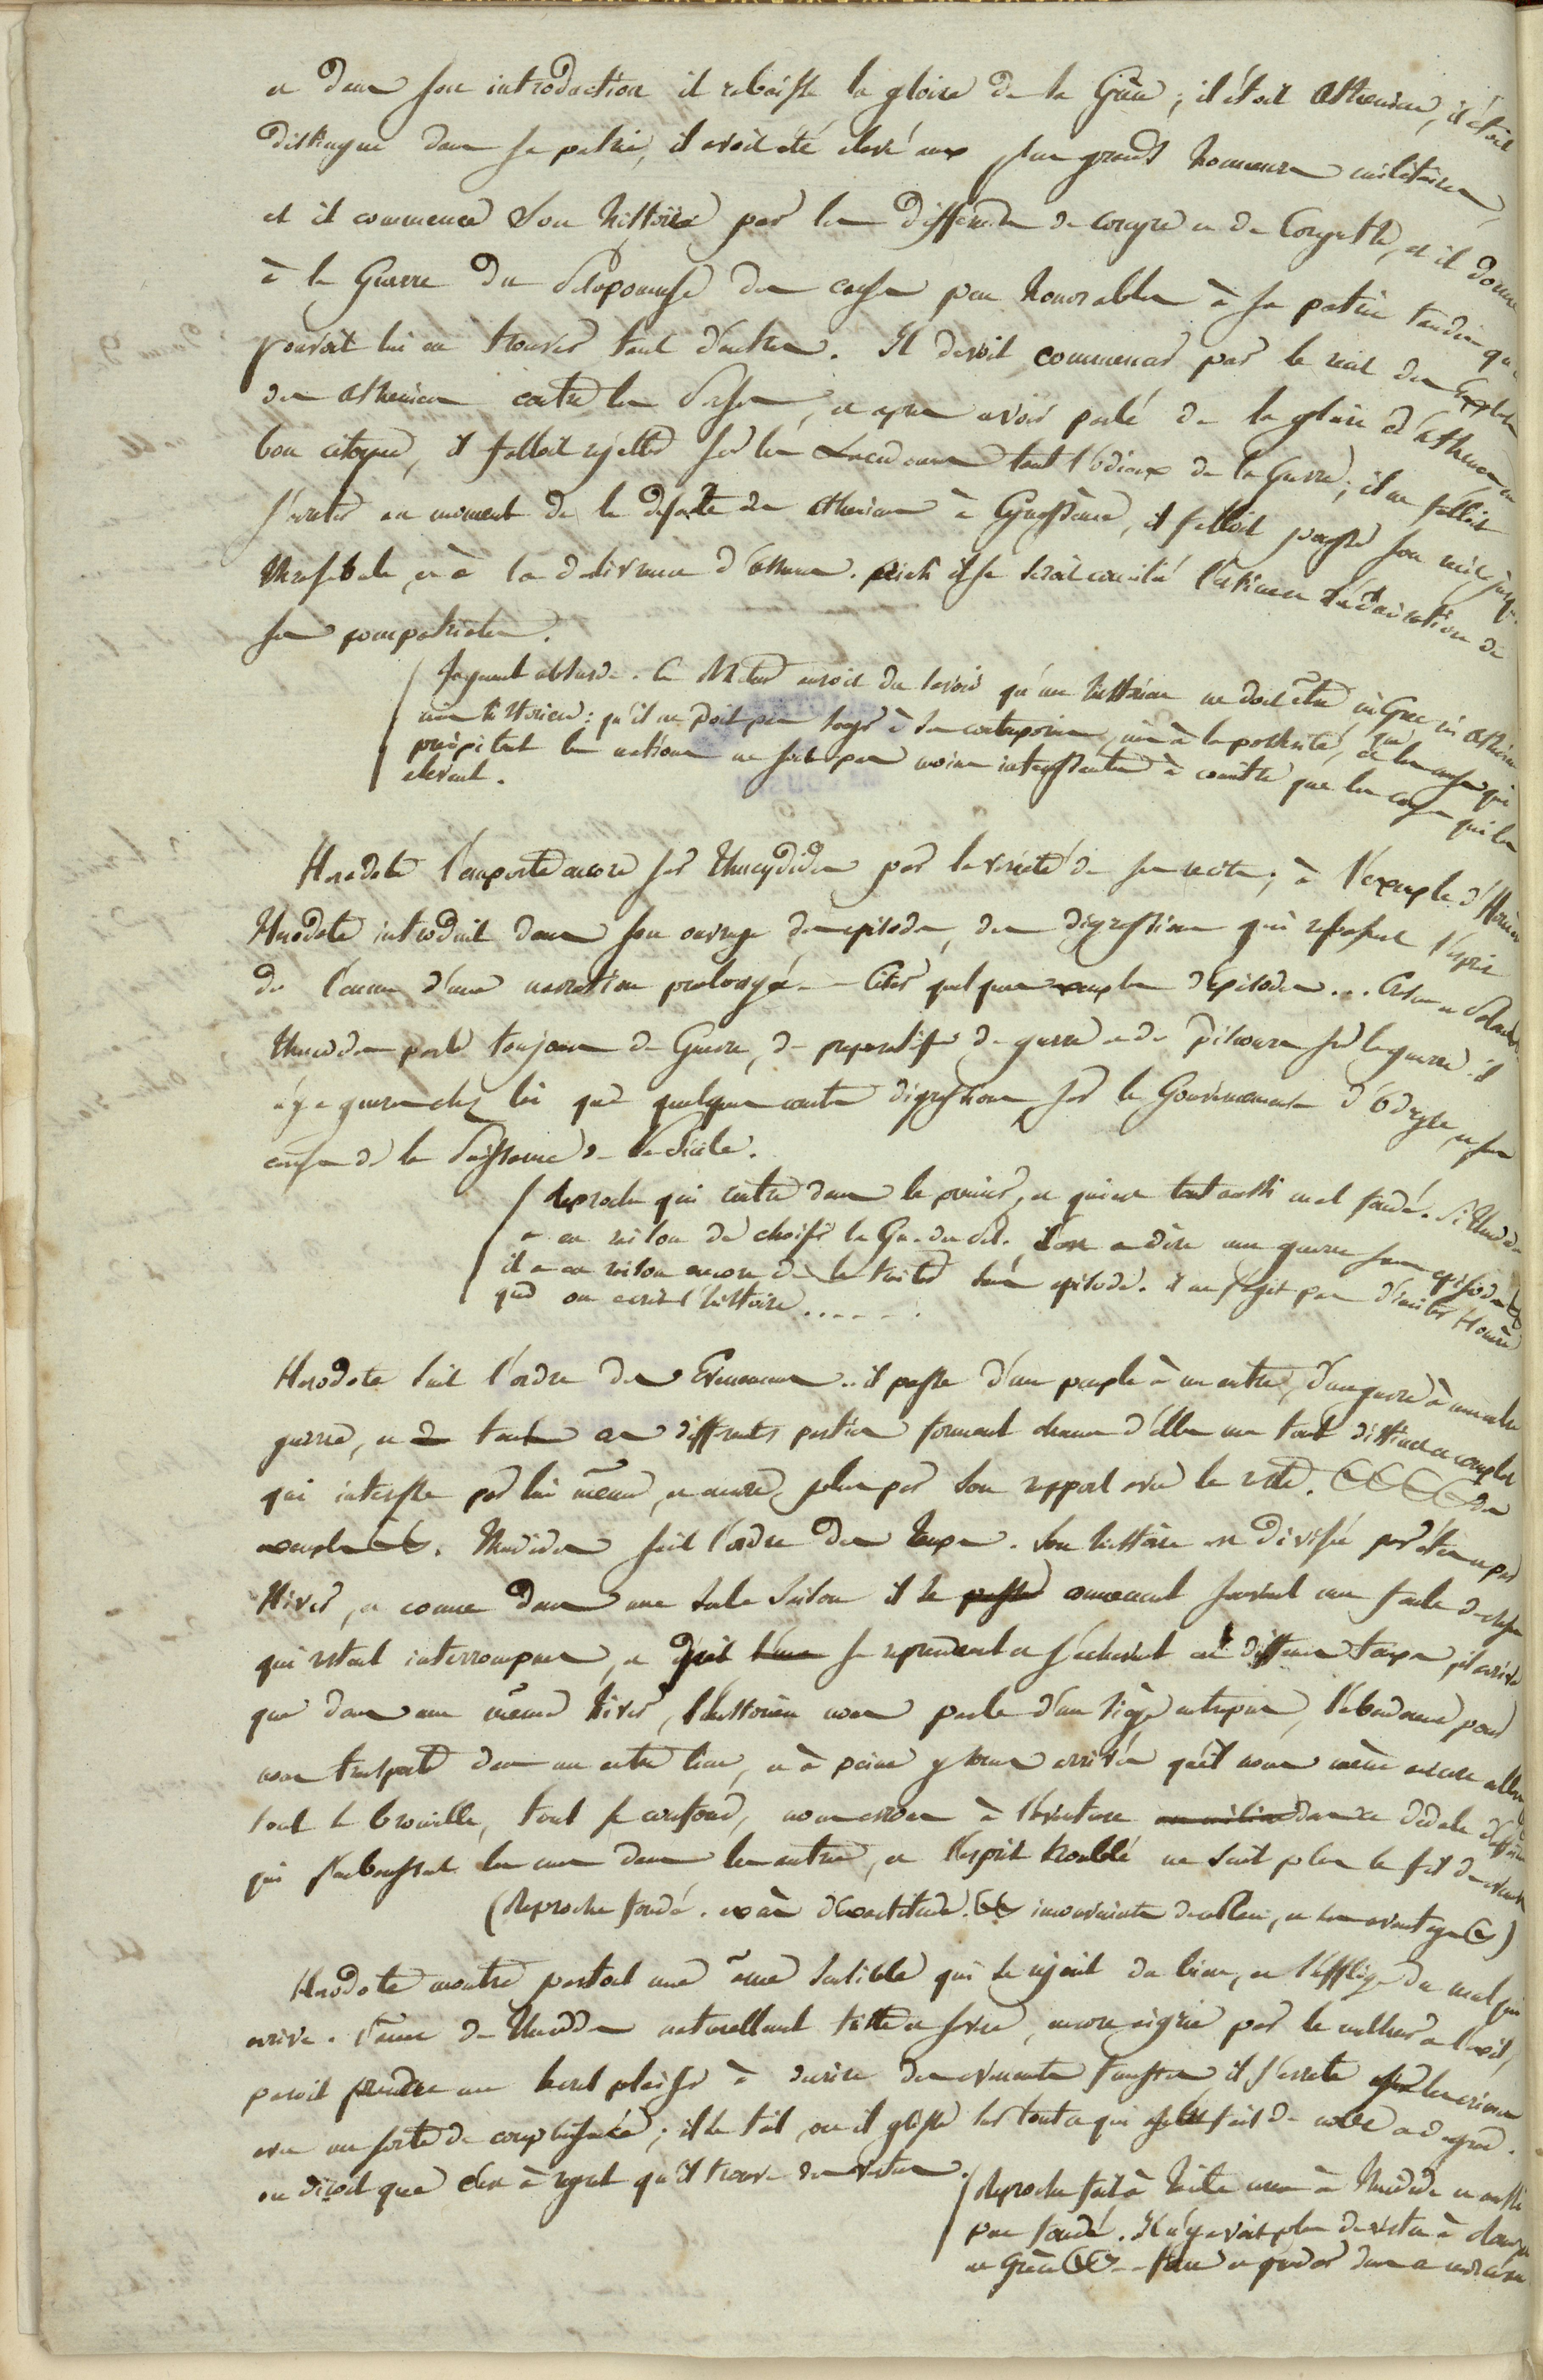 et dans son introduction il rabaisse la gloire de la Grèce ; il étoit Athenien, il étoit
distingué dans sa patrie, il avoit été elevé aux plus grands honneurs militaires,
et il commence son histoire par les differends de Corcyre et de Corynthe, et il donne
à la Guerre du Peloponnese des causes peu honorables à sa patrie tandis qu'il
pouvoit lui en trouver tant d'autres. Il devoit commencer par le recit des Exploits
des Atheniens contre les Perses, et apres avoir parlé de la gloire d'Athenes en
bon citoyen, il falloit rejetter sur les Lacedem tout l'odieux de la Guerre ; il ne falloit
s'arreter au moment de la defaite des Atheniens à Cynossème, il falloit pousser son recit jusqu'à
Thrasibule, et à la delivrance d'Athenes. ainsi il se seroit concilié l'estime et l'admiration de
ses compatriotes.
( Jugement absurde. Ce Rheteur auroit du savoir qu'un historien ne doit être ni Grec ni Athenien
mais historien : qu'il ne doit pas songer à ses contemporains, mais à la posterité, que les causes qui
précipitent les nations ne sont pas moins interessantes à connoitre que les causes qui les
elevent.
Herodote l'emporte encore sur Thucydides par la varieté de ses recits ; à l'exemple d'Homere
Herodote introduit dans son ouvrage des episodes, des digressions qui reposent l'esprit
de l'ennui d'une narration prolongée. - Citer quelques exemples d'Episodes...
Thucidides parle toujours de Guerre, de preparatifs de guerre et de discours sur la guerre. il
n'y a guere chez lui que quelques courtes digressions sur le Gouvernement d'Odryse, et sur
causes de la Puissance de la Sicile.
( Reproche qui rentre dans le premier, et qui est tout aussi mal fondé. Si Thucidide
a eu raison de choisir la Gu. du Pel. c'est à dire une guerre sans episodes
il a eu raison encore de la traiter sans episode. il ne s'agit pas d'imiter Homere
quand on ecrit l'histoire . . . . . .
Herodote suit l'ordre des Evenemens.. il passe d'un peuple à un autre, d'une guerre à une autre
guerre, et toutes ces differentes parties forment chacune d'elles un tout distinct et complet
qui interesse par lui même, et encore plus par son rapport avec le reste. des
exemples. Thucidides suit l'ordre des temps. son histoire est divisée par étés et par
hivers, et comme dans une seule saison il se passe commencent souvent une foule de choses
qui restent interrompues, et qui se reprennent et s'achevent en different temps, il arrive
que dans un même hiver, l'historien nous parle d'un siège entrepris, l'abandonne pour
nous transporter dans un autre lieu, et à peine y sommes arrivés qu'il nous mène encore ailleurs
tout se brouille, tout se confond, nous errons à l'aventure au milieu dans ce dedale d'affaires
qui s'embarrassent les unes dans les autres, et l'esprit troublé ne suit plus le fil des evenem
(Reproche fondé. exces d'exactitude. inconvenients des plans, et leurs avantages)
Herodote montre partout une âme sensible qui se rejouit du bien, et s'afflige du mal qui
arrive. l'ame de Thucidides naturellement triste et severe, encore aigrie par le malheur et l'exil,
paroit prendre un secret plaisir à decrire des evenements funestes, il s'arrete sur les crimes
avec une sorte de complaisance ; il se tait, ou il glisse sur tout ce qui s'est fait de noble et de grand.
on diroit que c'est à regret qu'il trouve des vertus.
( Reproche fait à Tacite comme à Thucidide et aussi
peu fondé. Il n'y avoit plus de vertus à
en Grèce